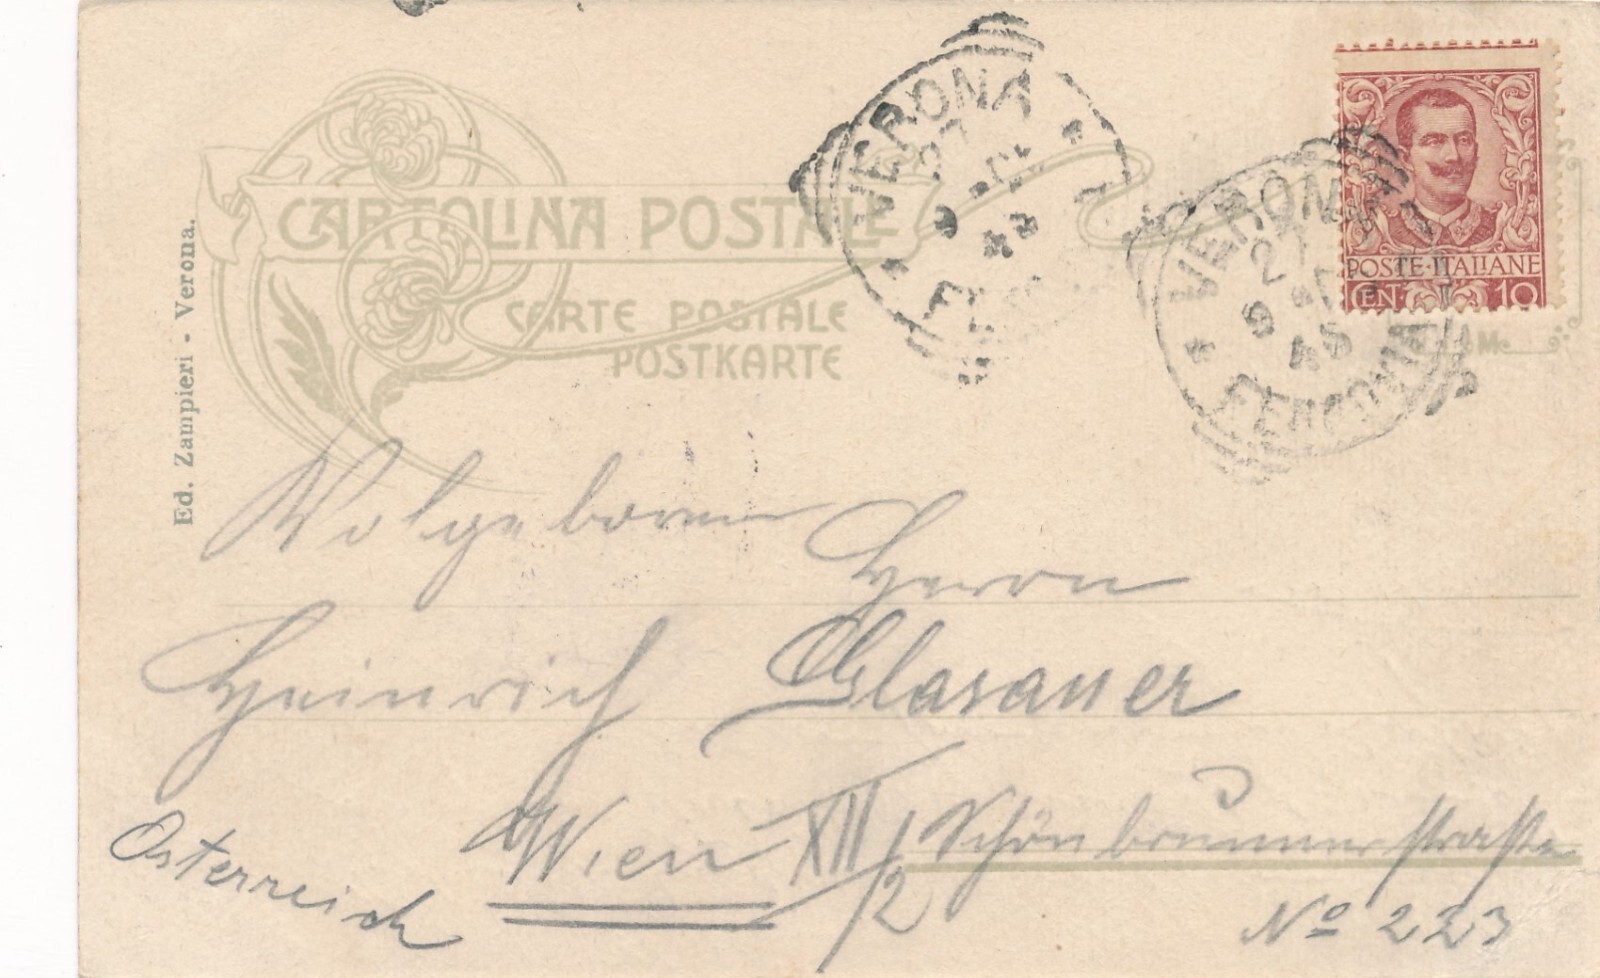 CARTOLINA POSTALE
CARTE POSTALE
POSTKARTE
Ed. Zampieri - Verona.
VERONA
27
FERROVIA
VERONA
27
FERROVIA
POSTE ITALIANE
CEN 10
Wolgeboren
Herrn
Heinrich Glasauer
Wien XII/2 Schönbrunnerstraße
Nº 223
Österreich